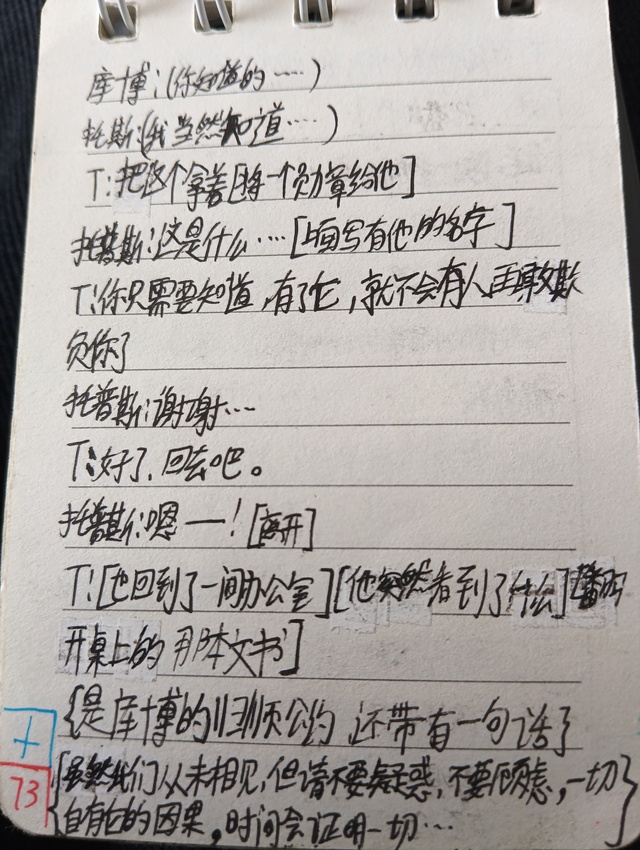 库博:(你知道的……)
托斯:(我当然知道……)
T:把这个拿着[将一个勋章给他]
托普斯:这是什么…[上面写有他的名字]
T:你只需要知道,有了它,就不会有人再敢欺
负你了
托普斯:谢谢…
T:好了,回去吧。
托普斯:嗯一![离开]
T:[他回到了一间办公室][他突然看到了什么][翻
开桌上的那本文书]
{是库博的归顺公约 还带有一句话}
{虽然我们从未相见,但请不要疑惑,不要顾虑,一切
自有它的因果,时间会证明一切…}
+
73